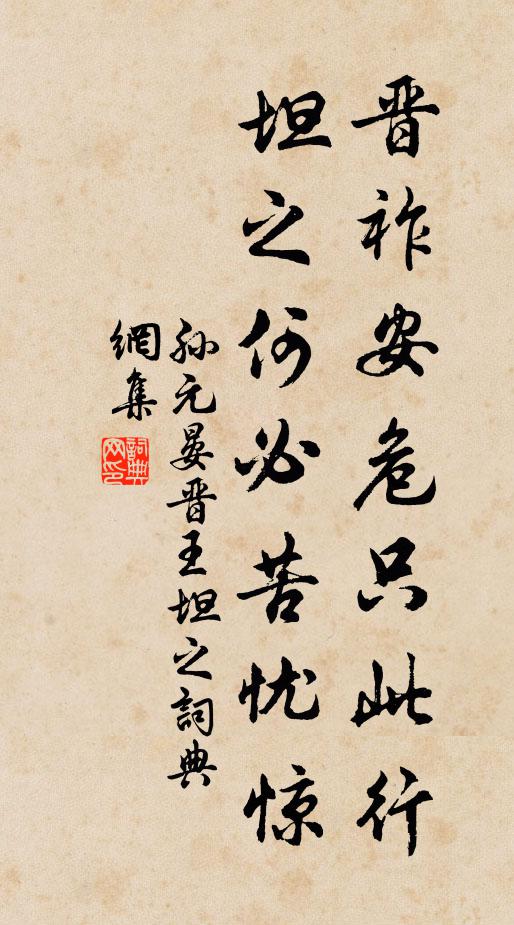 晋祚安危只此行
坦之何必苦忧惊
孙元晏晋王坦之詞典
網集
詞典
网印